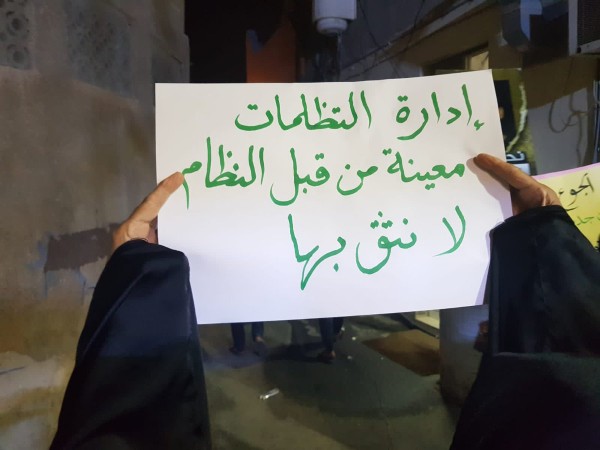 إدارة التظلمات
معينة من قبل النظام
لا نثق بها